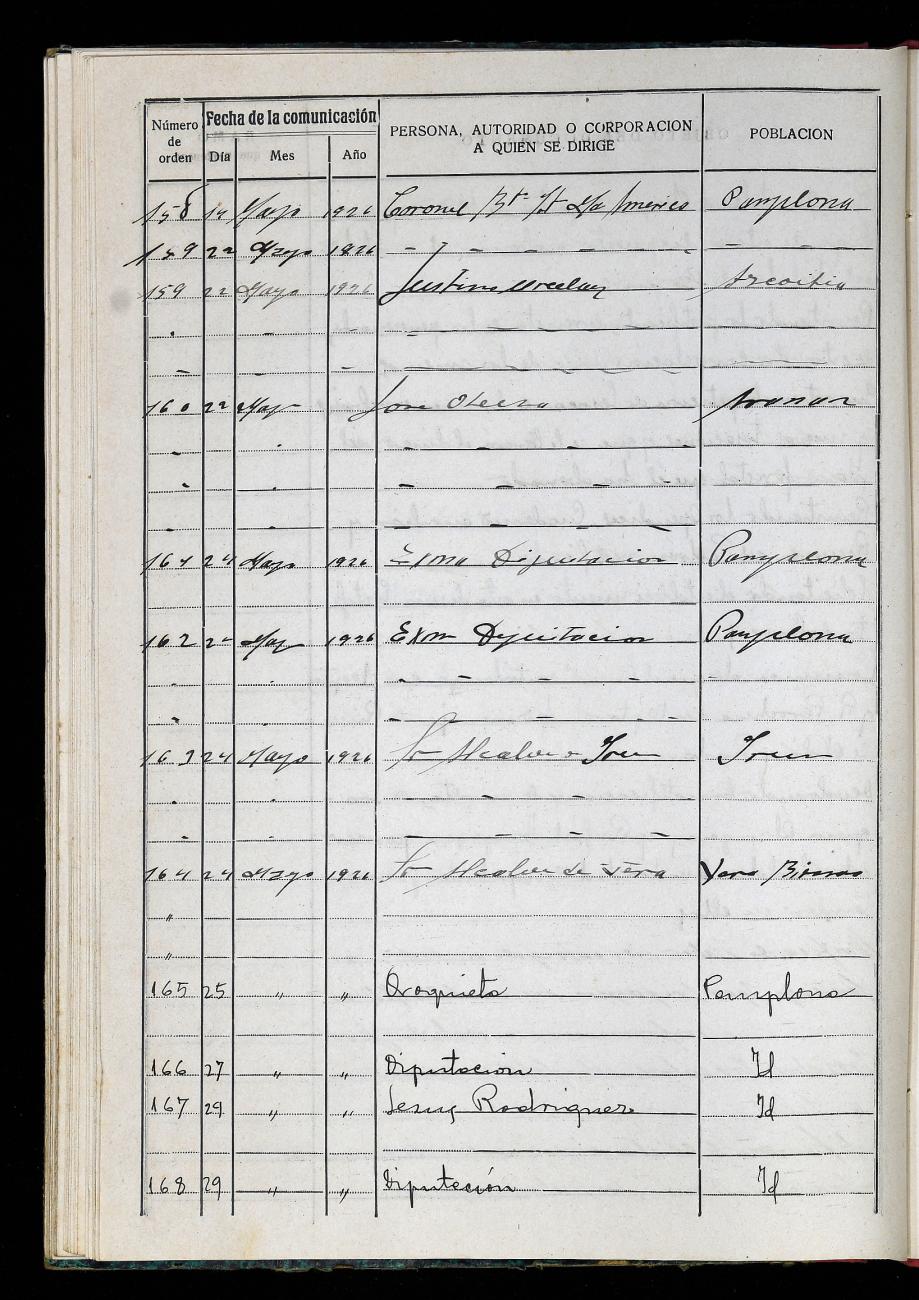 Número de orden Fecha de la comunicación PERSONA, AUTORIDAD O CORPORACION A QUIEN SE DIRIGE POBLACION
Día Mes Año
158 19 Mayo 1926 Coronel America Pamplona
159 22 Mayo 1926 – – – – – – – –
159 22 Mayo 1926 Justino Azcoitia
" – –
– – –
160 22 Mayo Jose Aranaz
161 24 Mayo 1926 Exma Diputacion Pamplona
162 2 Mayo 1926 Exm Diputacion Pamplona
163 24 Mayo 1926 Sr Alcalde Irun Irun
164 24 Mayo 1926 Sr Alcalde de Vera Vera
"
"
165 25 " " Oroquieta Pamplona
166 27 " " Diputacion Id
167 29 " " Jesus Rodriguez Id
168 29 " " Diputación Id